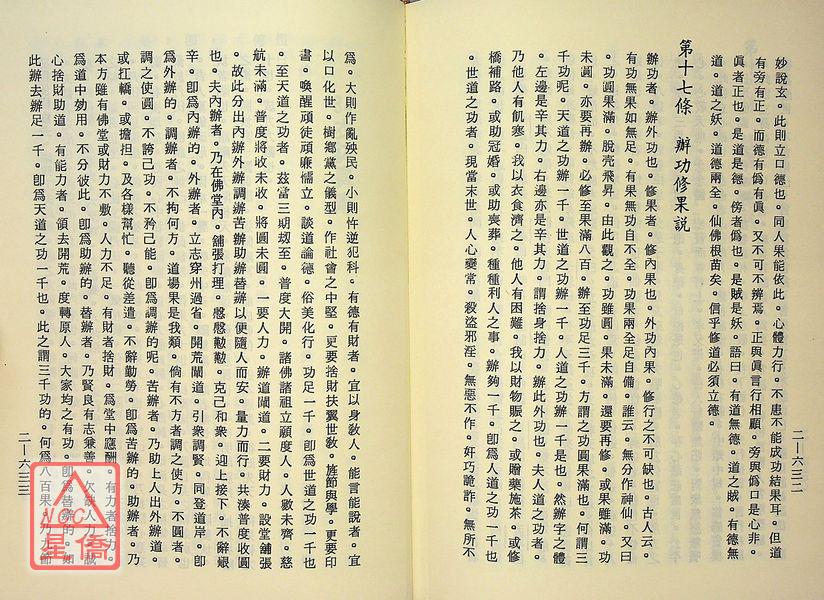 妙說玄。此則立口德也。同人果能依此。心體力行。不患不能成功結果耳。但道
有旁有正。而德有僞有眞。又不可不辨焉。正與眞言行相顧。旁與僞口是心非。
眞者正也。是道是德。傍者僞也。是賊是妖。語曰。有道無德。道之賊。有德無
道。道之妖。道德兩全。仙佛根苗矣。信乎修道必須立德。
第十七條 辦功修果說
辦功者。辦外功也。修果者。修內果也。外功內果。修行之不可缺也。古人云。
有功無果如無足。有果無功自不全。功果兩全足自備。誰云。無分作神仙。又曰
。功圓果滿。脫壳飛昇。由此觀之。功雖圓。果未滿。還要再修。或果雖滿。功
未圓。亦要再辦。必修至果滿八百。辦至功足三千。方謂之功圓果滿也。何謂三
千功呢。天道之功辦一千。世道之功辦一千。人道之功辦一千是也。然辦字之體
。左邊是辛其力。右邊亦是辛其力。謂捨身捨力。辦此外功也。夫人道之功者。
乃他人有飢寒。我以衣食濟之。他人有困難。我以財物賑之。或贈藥施茶。或修
橋補路。或助冠婚。或助喪葬。種種利人之事。辦夠一千。卽爲人道之功一千也
。世道之功者。現當末世。人心變常。殺盜邪淫。無惡不作。奸巧詭詐。無所不
二—六三二
爲。大則作亂殃民。小則忤逆犯科。有德有財者。宜以身敎人。能言能說者。宜
以口化世。樹鄉黨之儀型。作社會之中堅。更要捨財扶翼世敎。旌節與學。更要印
書。喚醒頑徒頑廉懦立。談道論德。俗美化行。功足一千。卽爲世道之功一千也
。至天道之功者。茲當三期刼至。普度大開。諸佛諸祖立願度人。人數未齊。慈
航未滿。普度將收未收。將圓未圓。一要人力。辦道闡道。二要財力。設堂舖張
。故此分出內辦外辦調辦苦辦助辦替辦以便隨人而安。量力而行。共湊普度收圓
也。夫內辦者。乃在佛堂內。舖張打理。慇慇懃懃。克己和衆。迎上接下。不辭艱
辛。卽爲內辦的。外辦者。立志穿州過省。開荒闡道。引衆調賢。同登道岸。卽
爲外辦的。調辦者。不拘何方。道場果是我類。倘有不方者調之使方。不圓者。
調之使圓。不誇己功。不矜己能。卽爲調辦的呢。苦辦者。乃助上人出外辦道。
或扛轎。或擔担。及各樣幫忙。聽從差遣。不辭勤勞。卽爲苦辦的。助辦者。乃
本方雖有佛堂或財力不敷。人力不足。有財者捨財。爲堂中應酬。有力者捨力。
爲道中効用。不分彼此。卽爲助辦的。替辦者。乃賢良有志兼善。欠缺人力。誠
心捨財助道。有能力者。領去開荒。度轉原人。大家均之有功。卽爲替辦的。如
此辦去辦足一千。卽爲天道之功一千也。此之謂三千功的。何爲八百果。乃力節
二—六三三
NCC
星僑